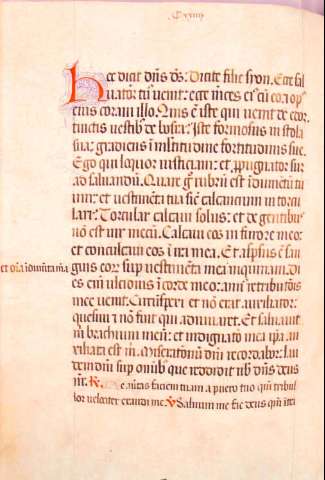 hec dicit dns ds: Dicite filie syon. Ecce sal
uator tuus uenit: ecce merces eius cum eo: et op
eius coram illo. Quis est iste qui uenit de edom:
tinctis uestibus de bosra: Iste formosus in stola
sua: gradiens in multitudine fortitudinis sue.
Ego qui loquor iusticiam: et propugnator sum
ad saluandum. Quare ergo rubrum est indumentum tu
um: et uestimenta tua sicut calcantium in torcu
lari: Torcular calcaui solus: et de gentibus
non est uir mecum. Calcaui eos in furore meo:
et conculcaui eos in ira mea. Et aspersus est san
et omnia indumenta mea guis eorum super uestimenta mea inquinaui. Di
es enim ulcionis in corde meo: annus retributionis
mee uenit. Circumspexi et non erat auxiliator:
quesiui et non fuit qui adiuuaret. Et saluauit
michi brachium meum: et indignatio mea ipsa au
xiliata est michi. Miserationum domini recordabor: lau
dem domini super omnibus que reddidit nobis dominus deus
noster. R. Ne auertas faciem tuam a puero tuo quoniam tribul
lor uelociter exaudi me. V Saluum me fac deus quoniam intra